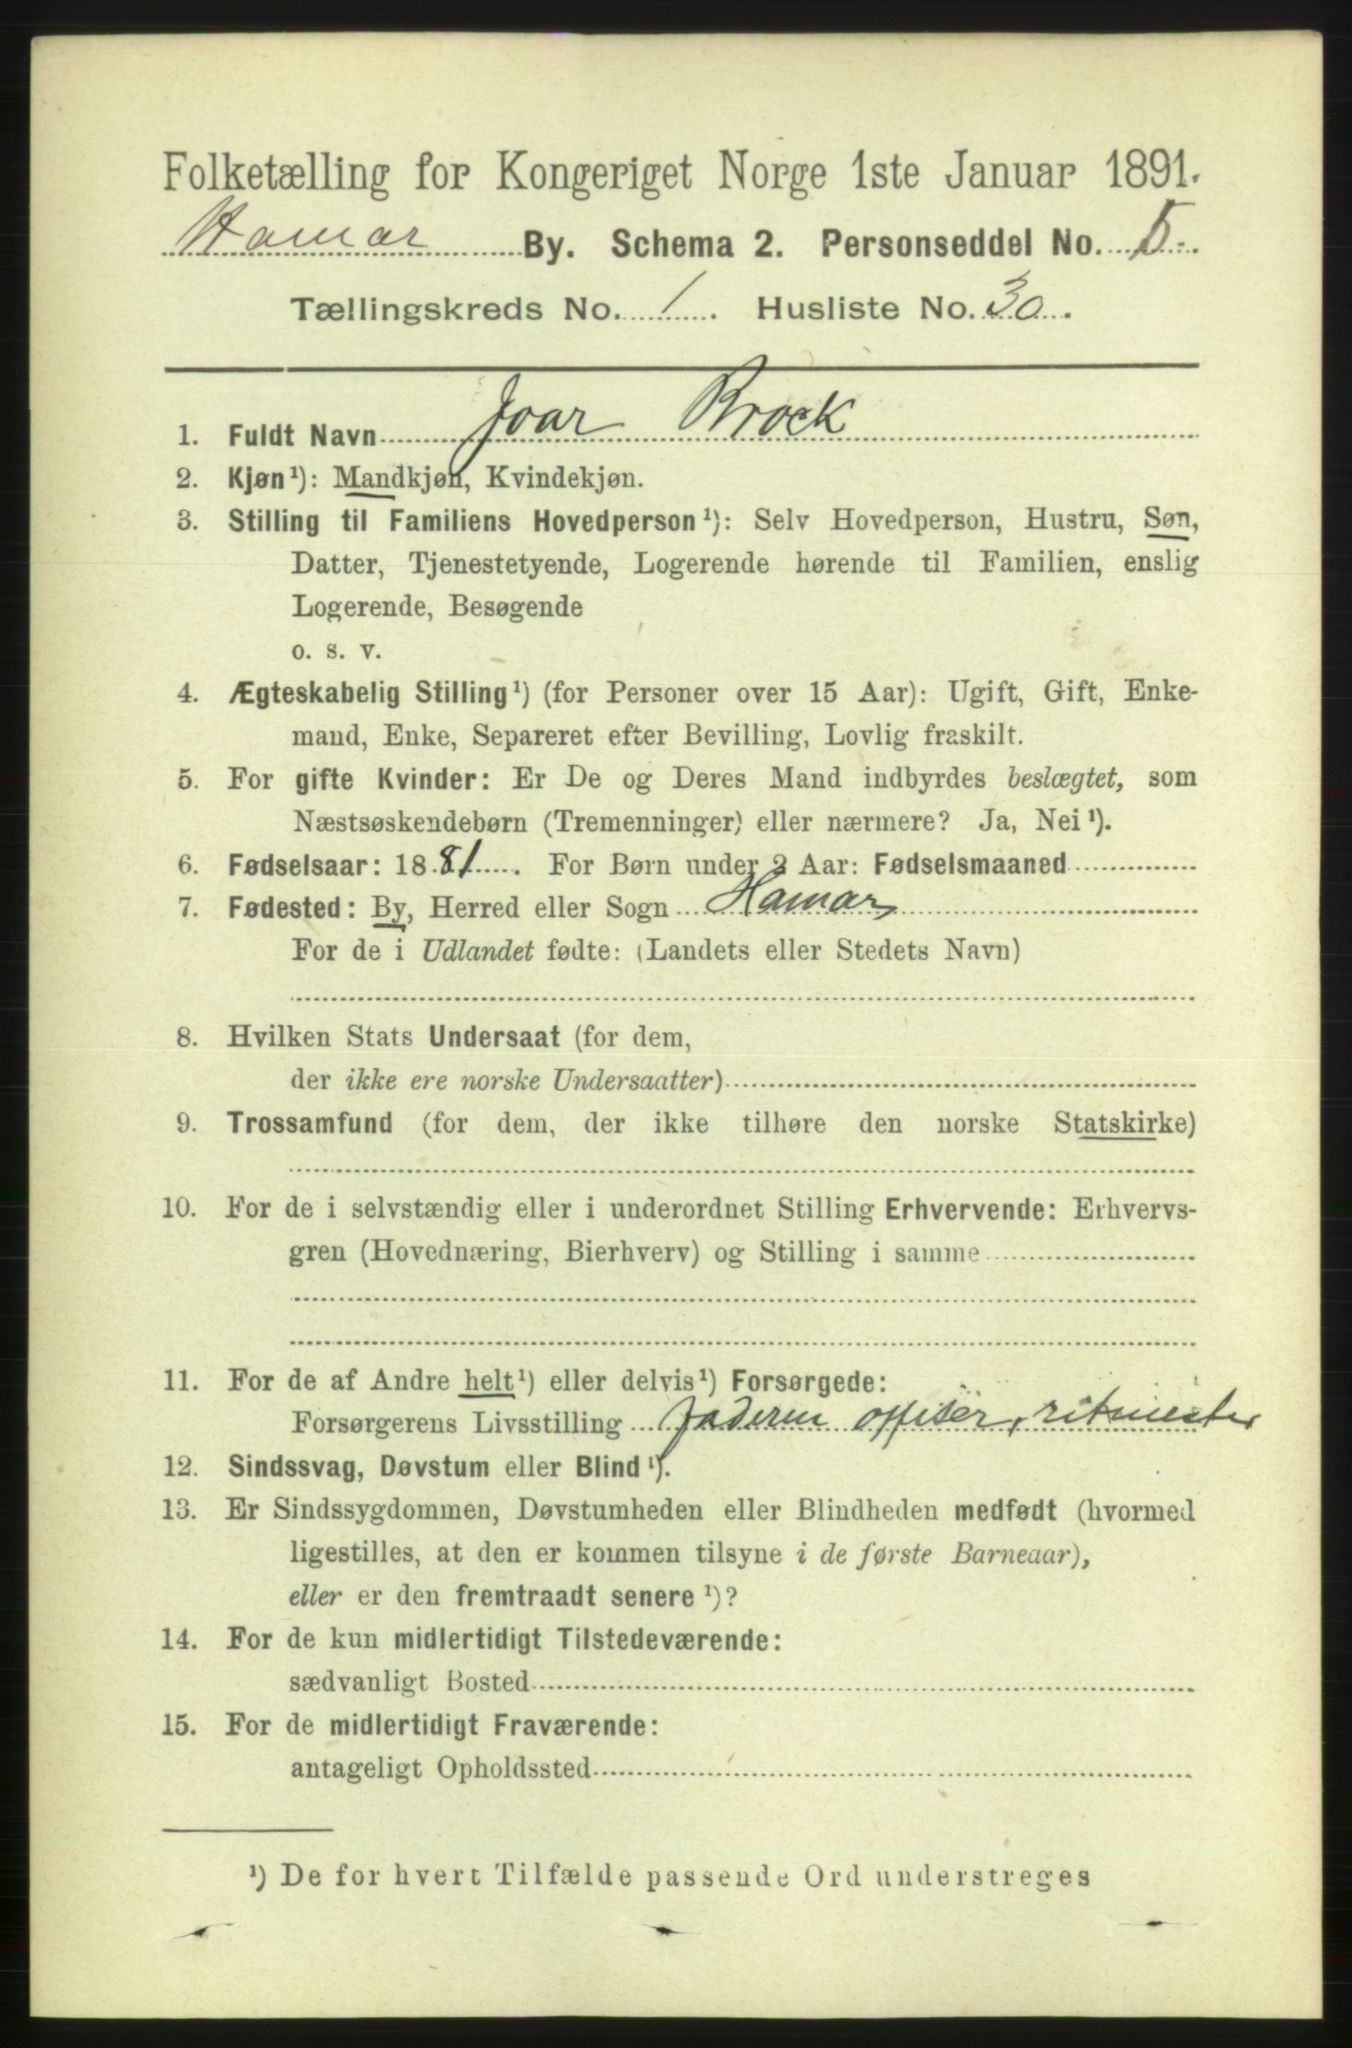 Folketælling for Kongeriget Norge 1ste Januar 1891.
Hamar By. Schema 2. Personseddel No. 5.
Tællingskreds No. 1. Husliste No. 30.
1. Fuldt Navn Joar Brock
2. Kjøn¹): Mandkjøn, Kvindekjøn.
3. Stilling til Familiens Hovedperson¹): Selv Hovedperson, Hustru, Søn,
Datter, Tjenestetyende, Logerende hørende til Familien, enslig
Logerende, Besøgende
o. s. v.
4. Ægteskabelig Stilling¹) (for Personer over 15 Aar): Ugift, Gift, Enke-
mand, Enke, Separeret efter Bevilling, Lovlig fraskilt.
5. For gifte Kvinder: Er De og Deres Mand indbyrdes beslægtet, som
Næstsøskendebørn (Tremenninger) eller nærmere? Ja, Nei¹).
6. Fødselsaar: 1881. For Børn under 2 Aar: Fødselsmaaned
7. Fødested: By, Herred eller Sogn Hamar
For de i Udlandet fødte: (Landets eller Stedets Navn)
8. Hvilken Stats Undersaat (for dem,
der ikke ere norske Undersaatter)
9. Trossamfund (for dem, der ikke tilhøre den norske Statskirke)
10. For de i selvstændig eller i underordnet Stilling Erhvervende: Erhvervs-
gren (Hovednæring, Bierhverv) og Stilling i samme
11. For de af Andre helt¹) eller delvis¹) Forsørgede:
Forsørgerens Livsstilling Faderen offiser, ritmester
12. Sindssvag, Døvstum eller Blind¹).
13. Er Sindssygdommen, Døvstumheden eller Blindheden medfødt (hvormed
ligestilles, at den er kommen tilsyne i de første Barneaar),
eller er den fremtraadt senere¹)?
14. For de kun midlertidigt Tilstedeværende:
sædvanligt Bosted
15. For de midlertidigt Fraværende:
antageligt Opholdssted
¹) De for hvert Tilfælde passende Ord understreges